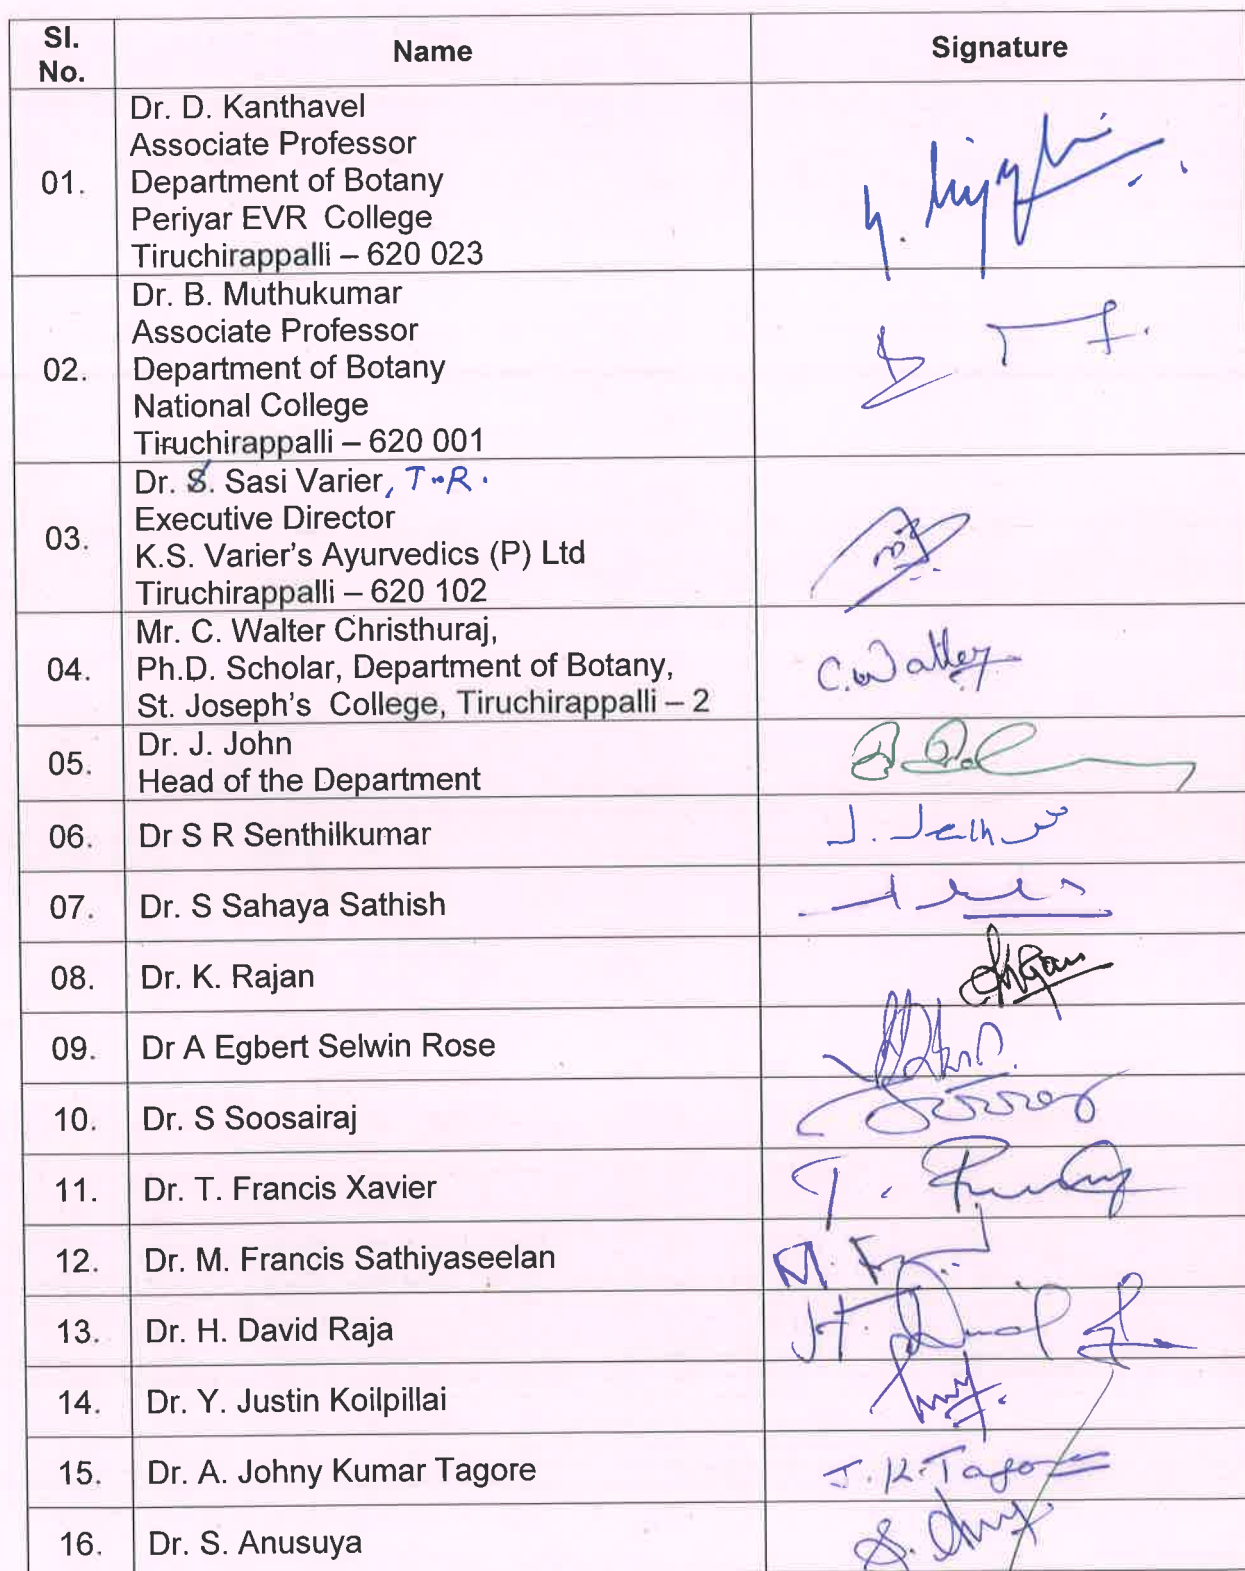 Sl. No. Name Signature
01. Dr. D. Kanthavel
Associate Professor
Department of Botany
Periyar EVR College
Tiruchirappalli – 620 023
02. Dr. B. Muthukumar
Associate Professor
Department of Botany
National College
Tiruchirappalli – 620 001
03. Dr. S. Sasi Varier, T.R.
Executive Director
K.S. Varier's Ayurvedics (P) Ltd
Tiruchirappalli – 620 102
04. Mr. C. Walter Christhuraj,
Ph.D. Scholar, Department of Botany,
St. Joseph's College, Tiruchirappalli – 2
C. Walter
05. Dr. J. John
Head of the Department
06. Dr S R Senthilkumar
07. Dr. S Sahaya Sathish
08. Dr. K. Rajan
09. Dr A Egbert Selwin Rose
10. Dr. S Soosairaj
11. Dr. T. Francis Xavier
12. Dr. M. Francis Sathiyaseelan
13. Dr. H. David Raja
14. Dr. Y. Justin Koilpillai
15. Dr. A. Johny Kumar Tagore J.K.Tagore
16. Dr. S. Anusuya